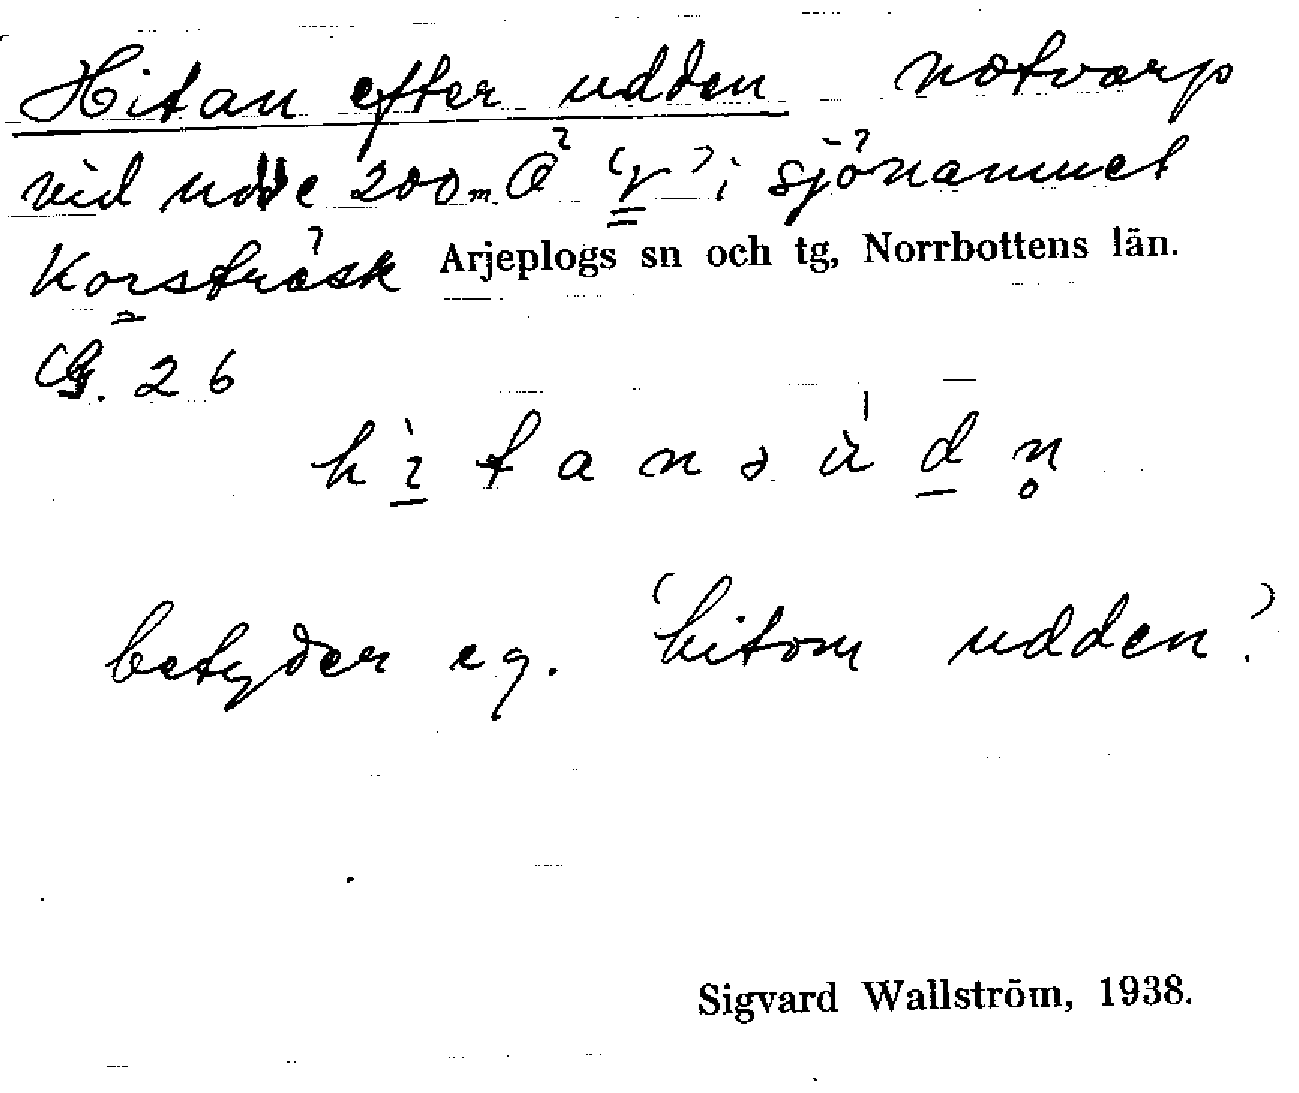 Hitan efter udden notvarp
vid udde 200 m. Ö 'r' i sjönamnet
Korsträsk Arjeplogs sn och tg, Norrbottens län.
G. 26
hìtanəùdn̥
betyder eg. 'hitom udden'.
Sigvard Wallström, 1938.